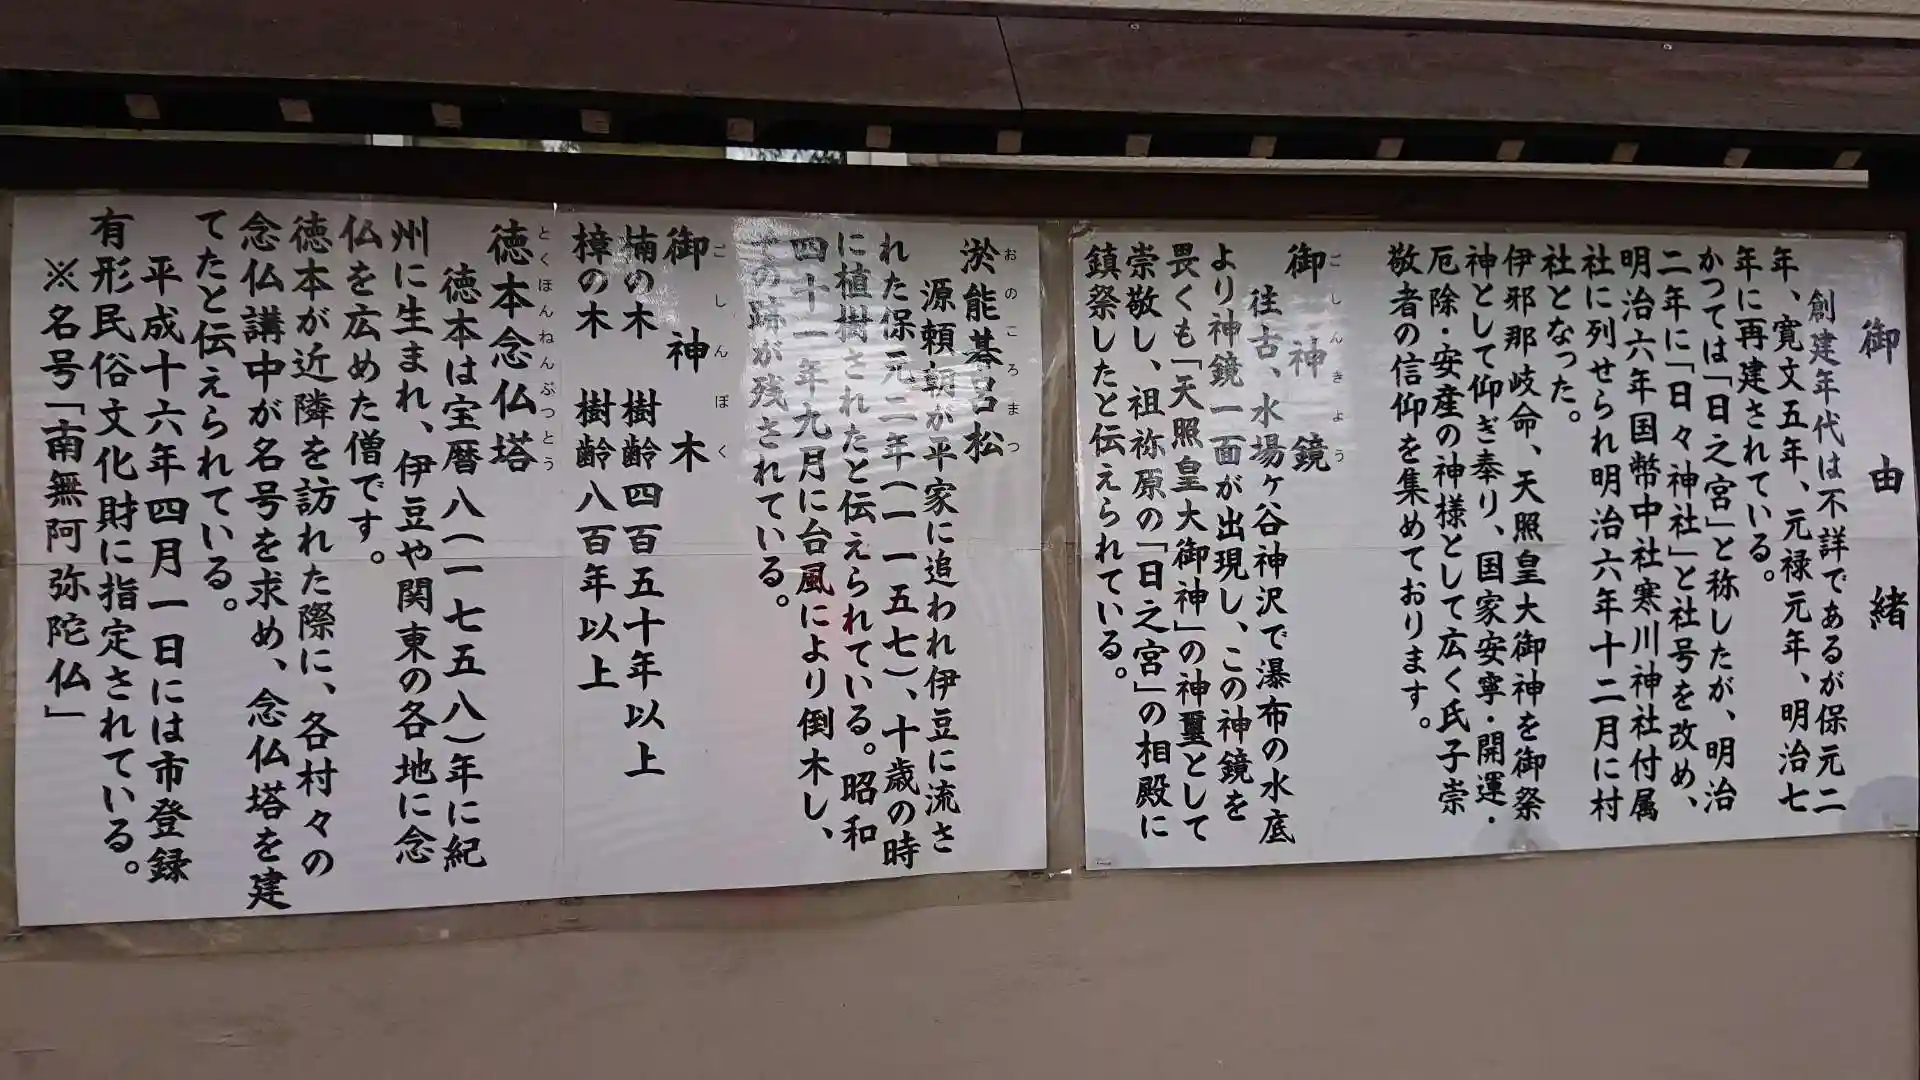 御由緒
創建年代は不詳であるが保元二
年、寛文五年、元禄元年、明治七
年に再建されている。
かつては「日之宮」と称したが、明治
二年に「日々神社」と社号を改め、
明治六年国幣中社寒川神社付属
社に列せられ明治六年十二月に村
社となった。
伊邪那岐命、天照皇大御神を御祭
神として仰ぎ奉り、国家安寧・開運・
厄除・安産の神様として広く氏子崇
敬者の信仰を集めております。
御神鏡
ごしんきょう
往古、水場ヶ谷神沢で瀑布の水底
より神鏡一面が出現し、この神鏡を
畏くも「天照皇大御神」の神璽として
崇敬し、祖祢原の「日之宮」の相殿に
鎮祭したと伝えられている。
淤能碁呂松
おのころまつ
源頼朝が平家に追われ伊豆に流さ
れた保元二年(一一五七)、十歳の時
に植樹されたと伝えられている。昭和
四十一年九月に台風により倒木し、
その跡が残されている。
御神木
ごしんぼく
楠の木 樹齢四百五十年以上
樟の木 樹齢八百年以上
徳本念仏塔
とくほんねんぶつとう
徳本は宝暦八(一七五八)年に紀
州に生まれ、伊豆や関東の各地に念
仏を広めた僧です。
徳本が近隣を訪れた際に、各村々の
念仏講中が名号を求め、念仏塔を建
てたと伝えられている。
平成十六年四月一日には市登録
有形民俗文化財に指定されている。
※名号「南無阿弥陀仏」